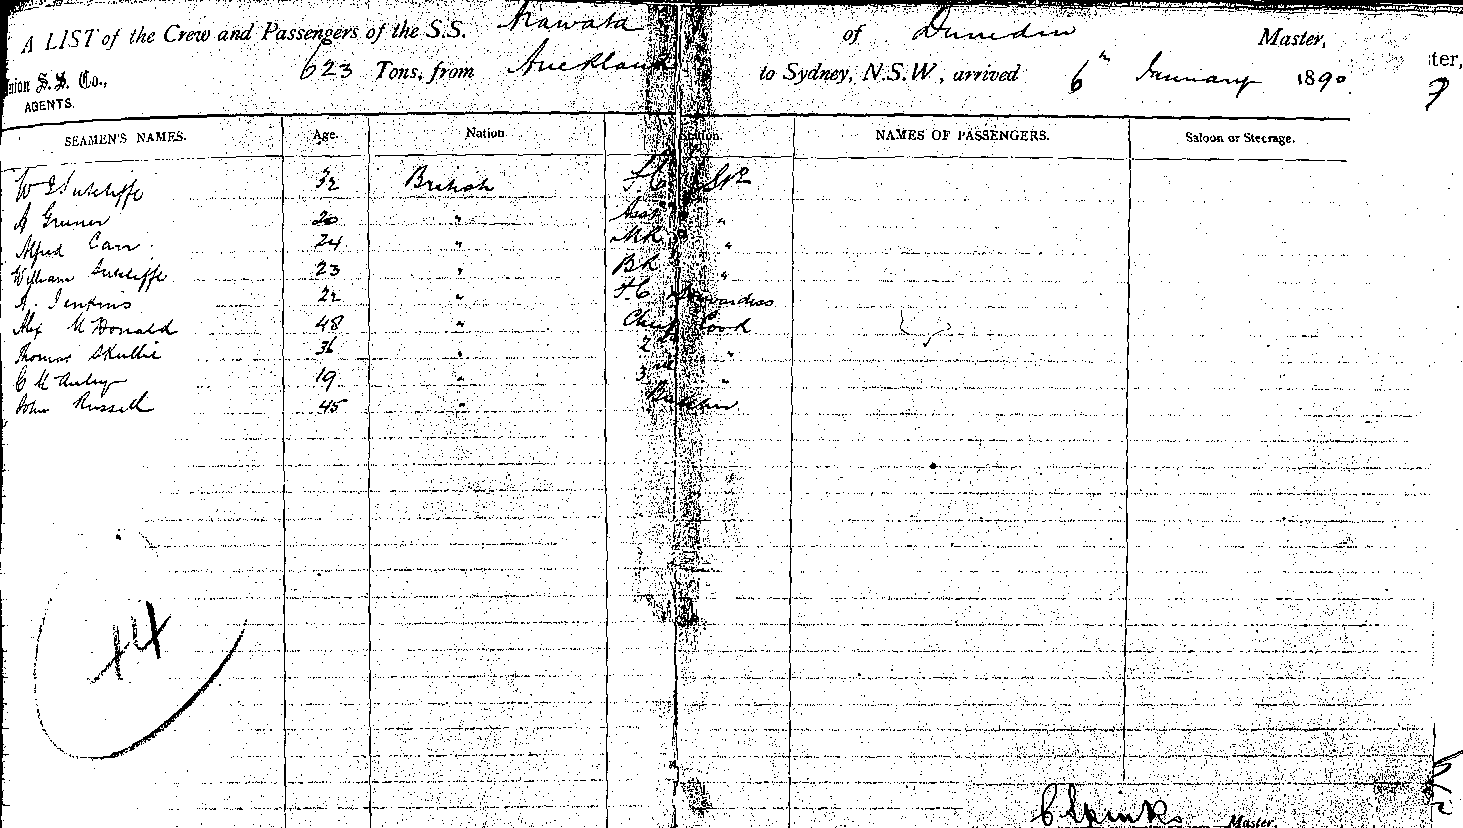 A LIST of the Crew and Passengers of the S.S. Arawata of Dunedin Master,
623 Tons, from Auckland to Sydney, N.S.W, arrived 6th January 1890.
ter,
Union S.S. Co.,
AGENTS.
SEAMEN'S NAMES. Age. Nation Station. NAMES OF PASSENGERS. Saloon or Steerage.
W E Sutcliffe 32 British F.C.
A Gruner 20 " Asst "
Alfred Carr 24 " "
William Sutcliffe 23 " Bk "
A. Jenkins 22 " F.C. Stewardess
Alex McDonald 48 " Chief Cook
Thomas Skullie 36 " 2 "
C 19 " 3rd "
John Russell 45 " Butcher
44
Master.